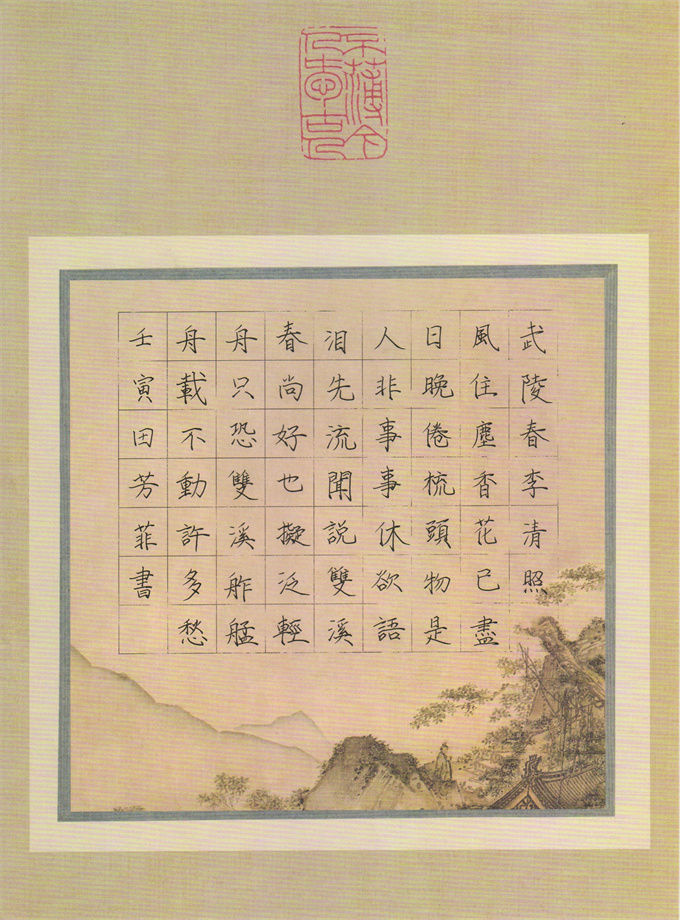 不薄今
人愛古人
武陵春李清照
風住塵香花已盡
日晚倦梳頭物是
人非事事休欲語
泪先流聞説雙溪
春尚好也擬泛輕
舟只恐雙溪舴艋
舟載不動許多愁
壬寅田芳菲書